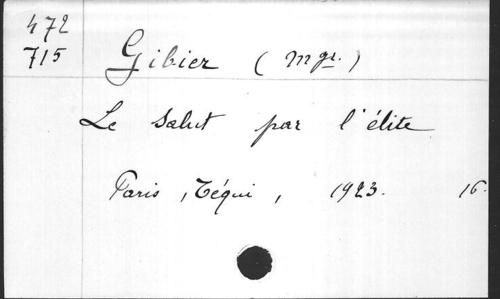 472
715
Gibier (Mgr.)
Le Salut par l'élite
Paris, Téqui, 1923. 16.